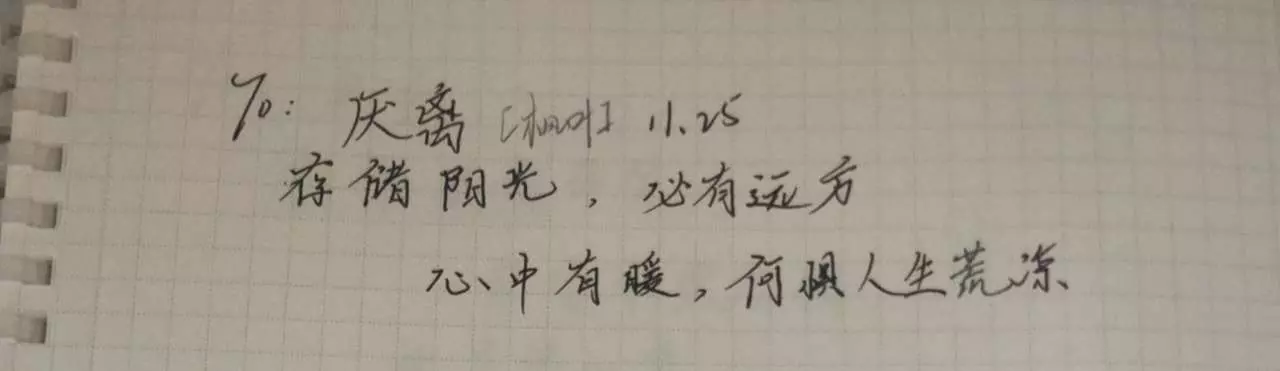 To: 厌离 11.25
存储阳光，必有远方
心中有暖，何惧人生荒凉